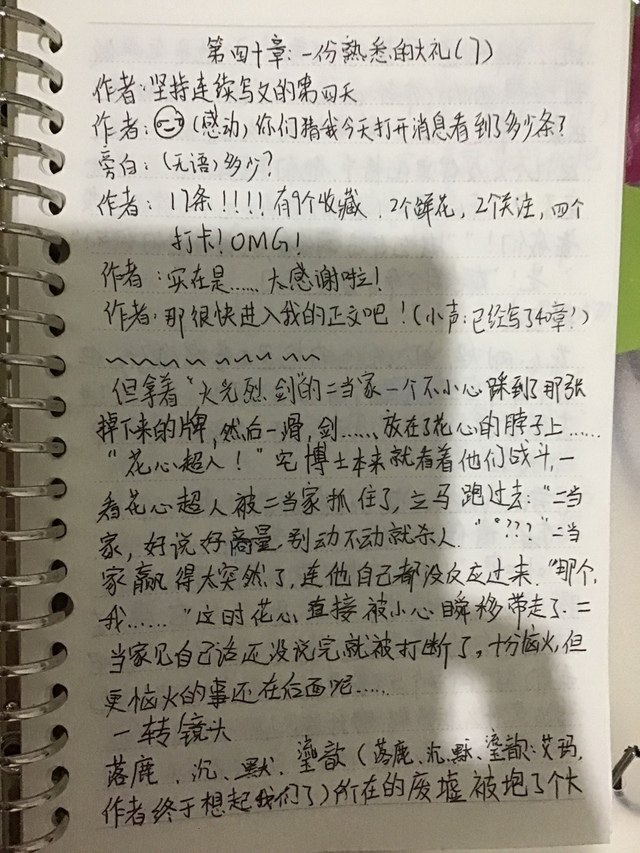 第四十章:一份熟悉的大礼(7)
作者:坚持连续写文的第四天
作者:(感动)你们猜我今天打开消息看到了多少条?
旁白:(无语)多少?
作者:17条!!!!有9个收藏、2个鲜花,2个关注,四个
打卡!OMG!
作者:实在是……太感谢啦!
作者:那很快进入我的正文吧!(小声:已经写了40章!)
但拿着“火光烈剑”的二当家一个不小心踩到了那张
掉下来的牌,然后一滑,剑……放在了花心的脖子上……
“花心超人!”宅博士本来就看着他们战斗,一
看花心超人被二当家抓住了,立马跑过去:“二当
家,好说好商量,别动不动就杀人。”“???”二当
家赢得太突然了,连他自己都没反应过来。“那个,
我……”这时花心直接被小心瞬移带走了.二
当家见自己话还没说完就被打断了,十分恼火,但
更恼火的事还在后面呢……
一转镜头
落鹿、沉、默、鎏歆(落鹿、沉、默、鎏歆:艾玛,
作者终于想起我们了)所在的废墟被炮了个大